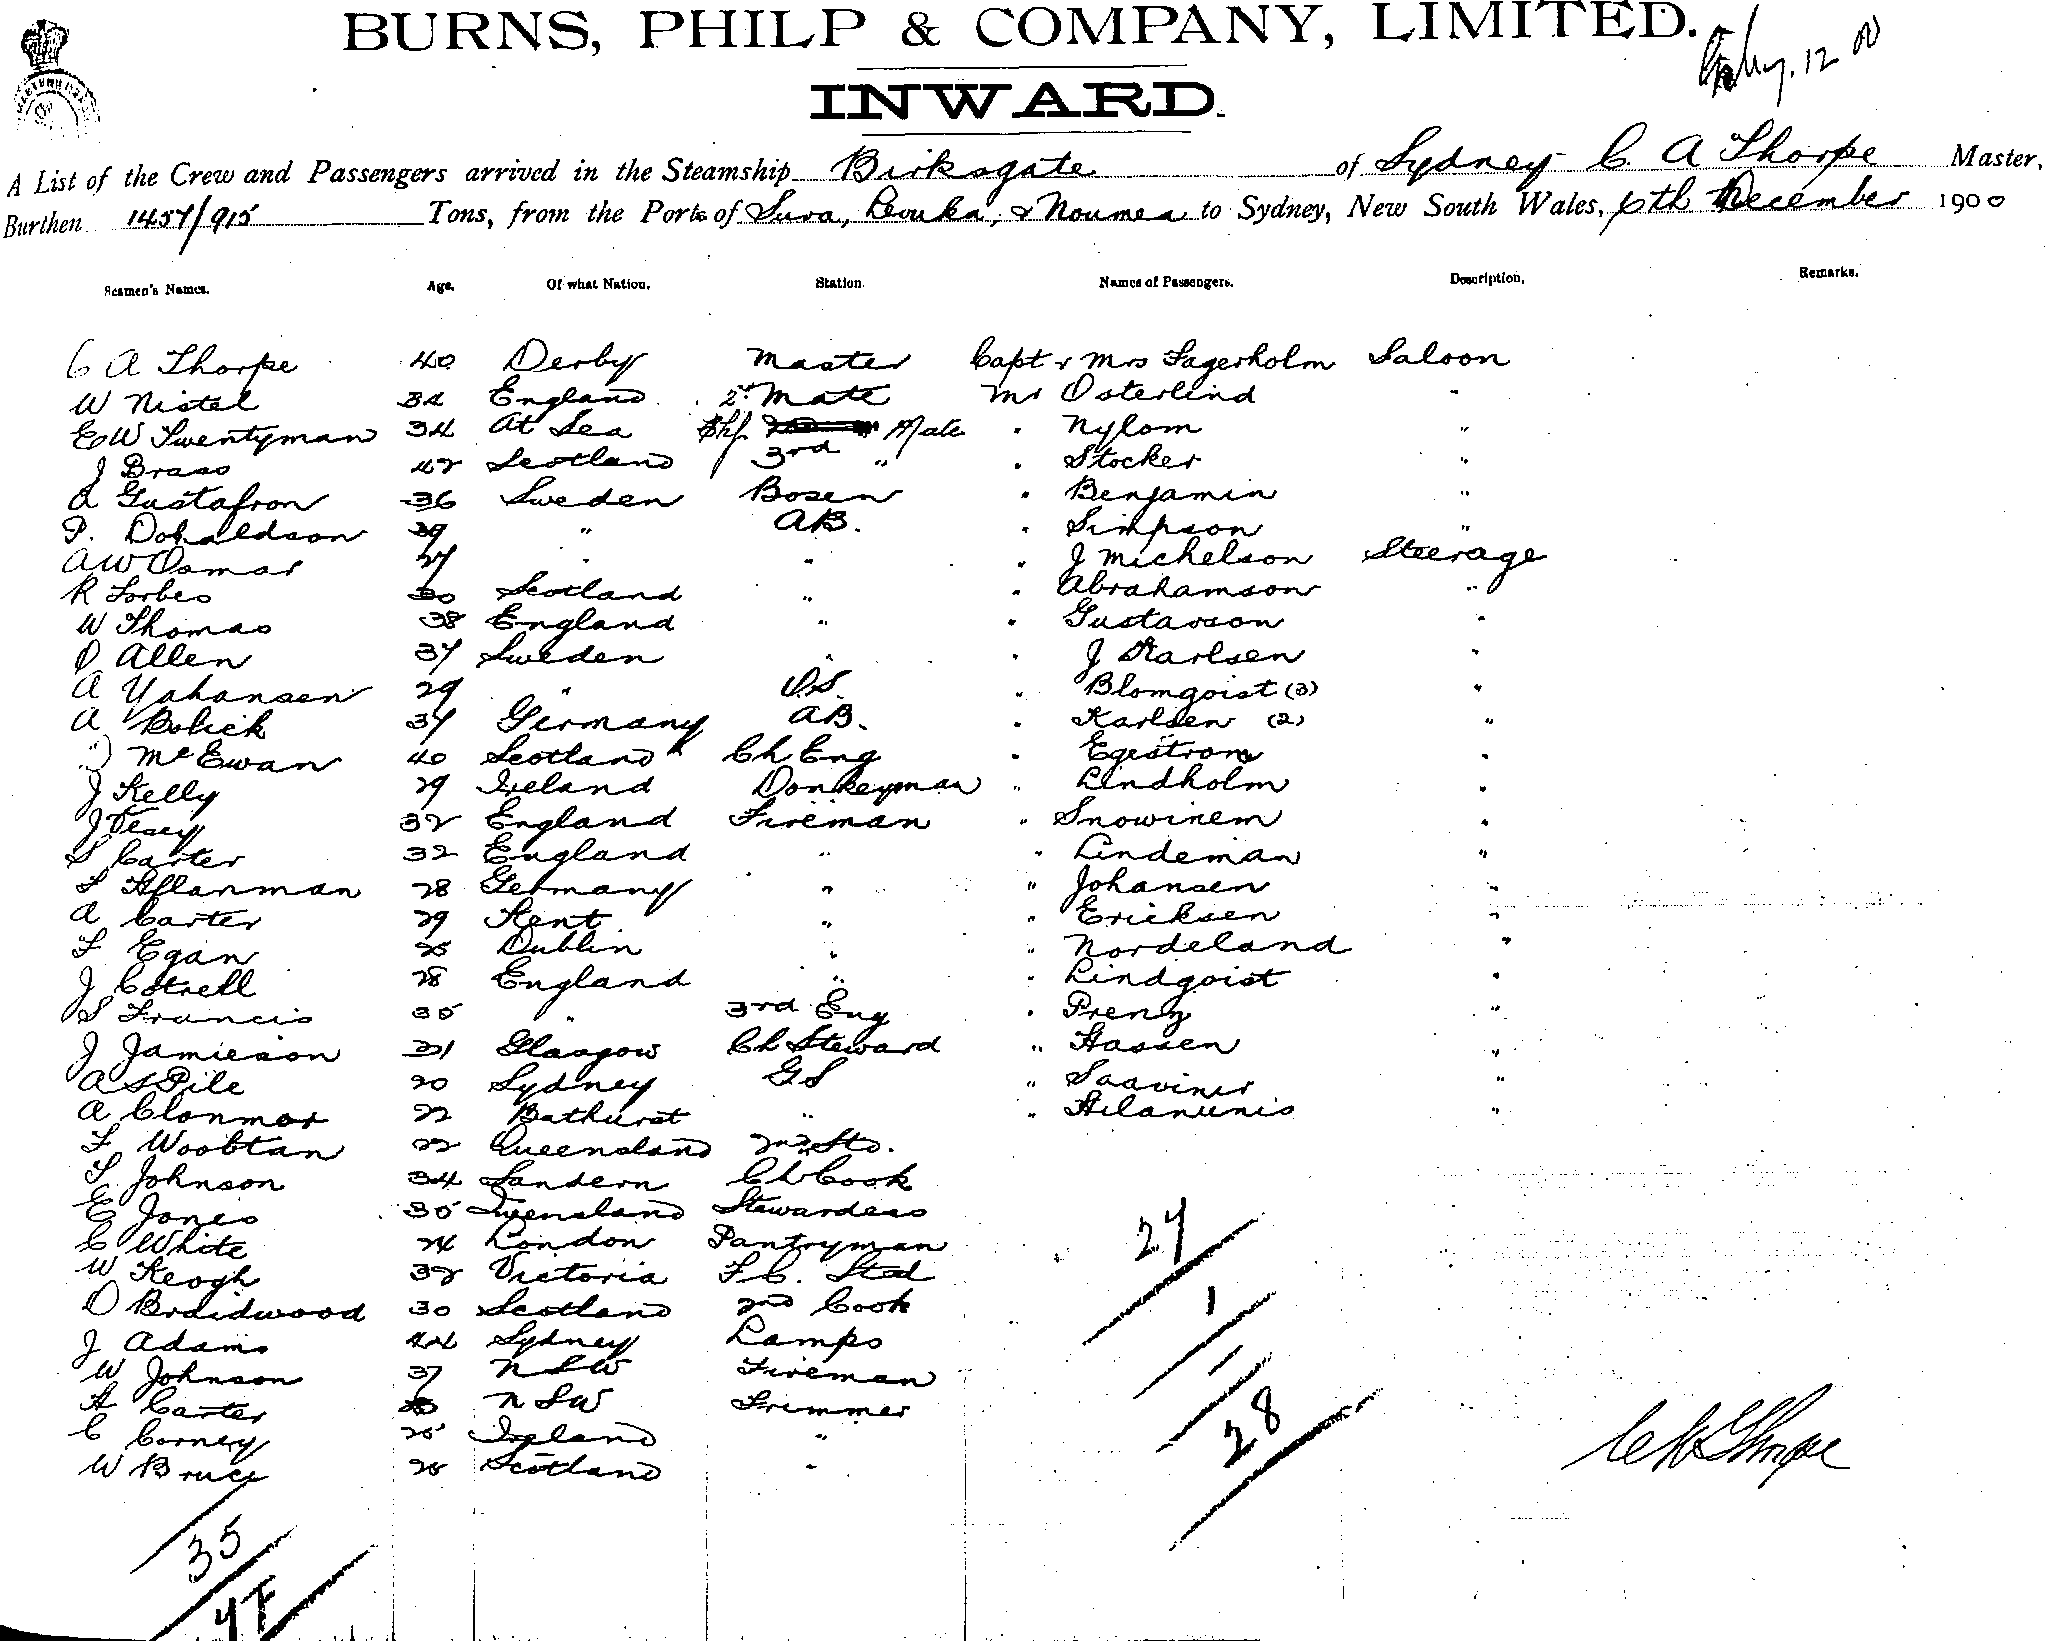 BURNS, PHILP & COMPANY, LIMITED.
12 00
INWARD.
A List of the Crew and Passengers arrived in the Steamship Birksgate of Sydney C. A Thorpe Master,
Burthen 1457/915 Tons, from the Ports of Suva, Levuka, & Noumea to Sydney, New South Wales, 6th December 1900
Seamen's Names. Age. Of what Nation. Station. Names of Passengers. Description. Remarks.
C A Thorpe 40 Derby Master Capt & Mrs Fagerholm Saloon
W Nistel 34 England 2nd Mate Mr Osterlind "
E W Swentyman 34 At Sea Chf Mate " Nylom "
J Brass 42 Scotland 3rd " " Stocker "
A Gustafson 36 Sweden Bosen " Benjamin "
P. Donaldson 39 " AB. " Simpson "
A W Osmar 27 " " " J Michelson Steerage
R Forbes 30 Scotland " " Abrahamson "
W Thomas 38 England " " Gustavson "
O Allen 37 Sweden " " J Karlsen "
A Yahansen 29 " O.S. " Blomqoist (3) "
A Bolick 37 Germany AB. " Karlsen (2) "
McEwan 40 Scotland Ch Eng " Egestrom "
J Kelly 29 Ireland Donkeyman " Lindholm "
J Vesey 32 England Fireman " Snowinem "
S Carter 32 England " " Lindeman "
F Aflanman 28 Germany " " Johansen "
A Carter 29 Kent " " Ericksen "
F Egan 25 Dublin " " Nordeland "
J Cotrell 28 England " " Lindqoist "
S Francis 35 " 3rd Eng " Prenz "
J Jamieson 31 Glasgow Ch Steward " Hassen "
A S Pile 20 Sydney GS " Saavinir "
A Clonmor 22 Bathurst " " Hilanunis "
F Woobtan 22 Queensland 2nd Std.
S Johnson 34 Sandern Ch Cook
E Jones 35 Queensland Stewardess
C White 24 London Pantryman
W Keogh 32 Victoria F.C. Sted
D Braidwood 30 Scotland 2nd Cook
J Adams 44 Sydney Lamps
W Johnson 37 N S W Fireman
A Carter N S W Trimmer
C Corney 25 Ireland "
W Bruce 25 Scotland "
27
1
1
28
C A Thorpe
35